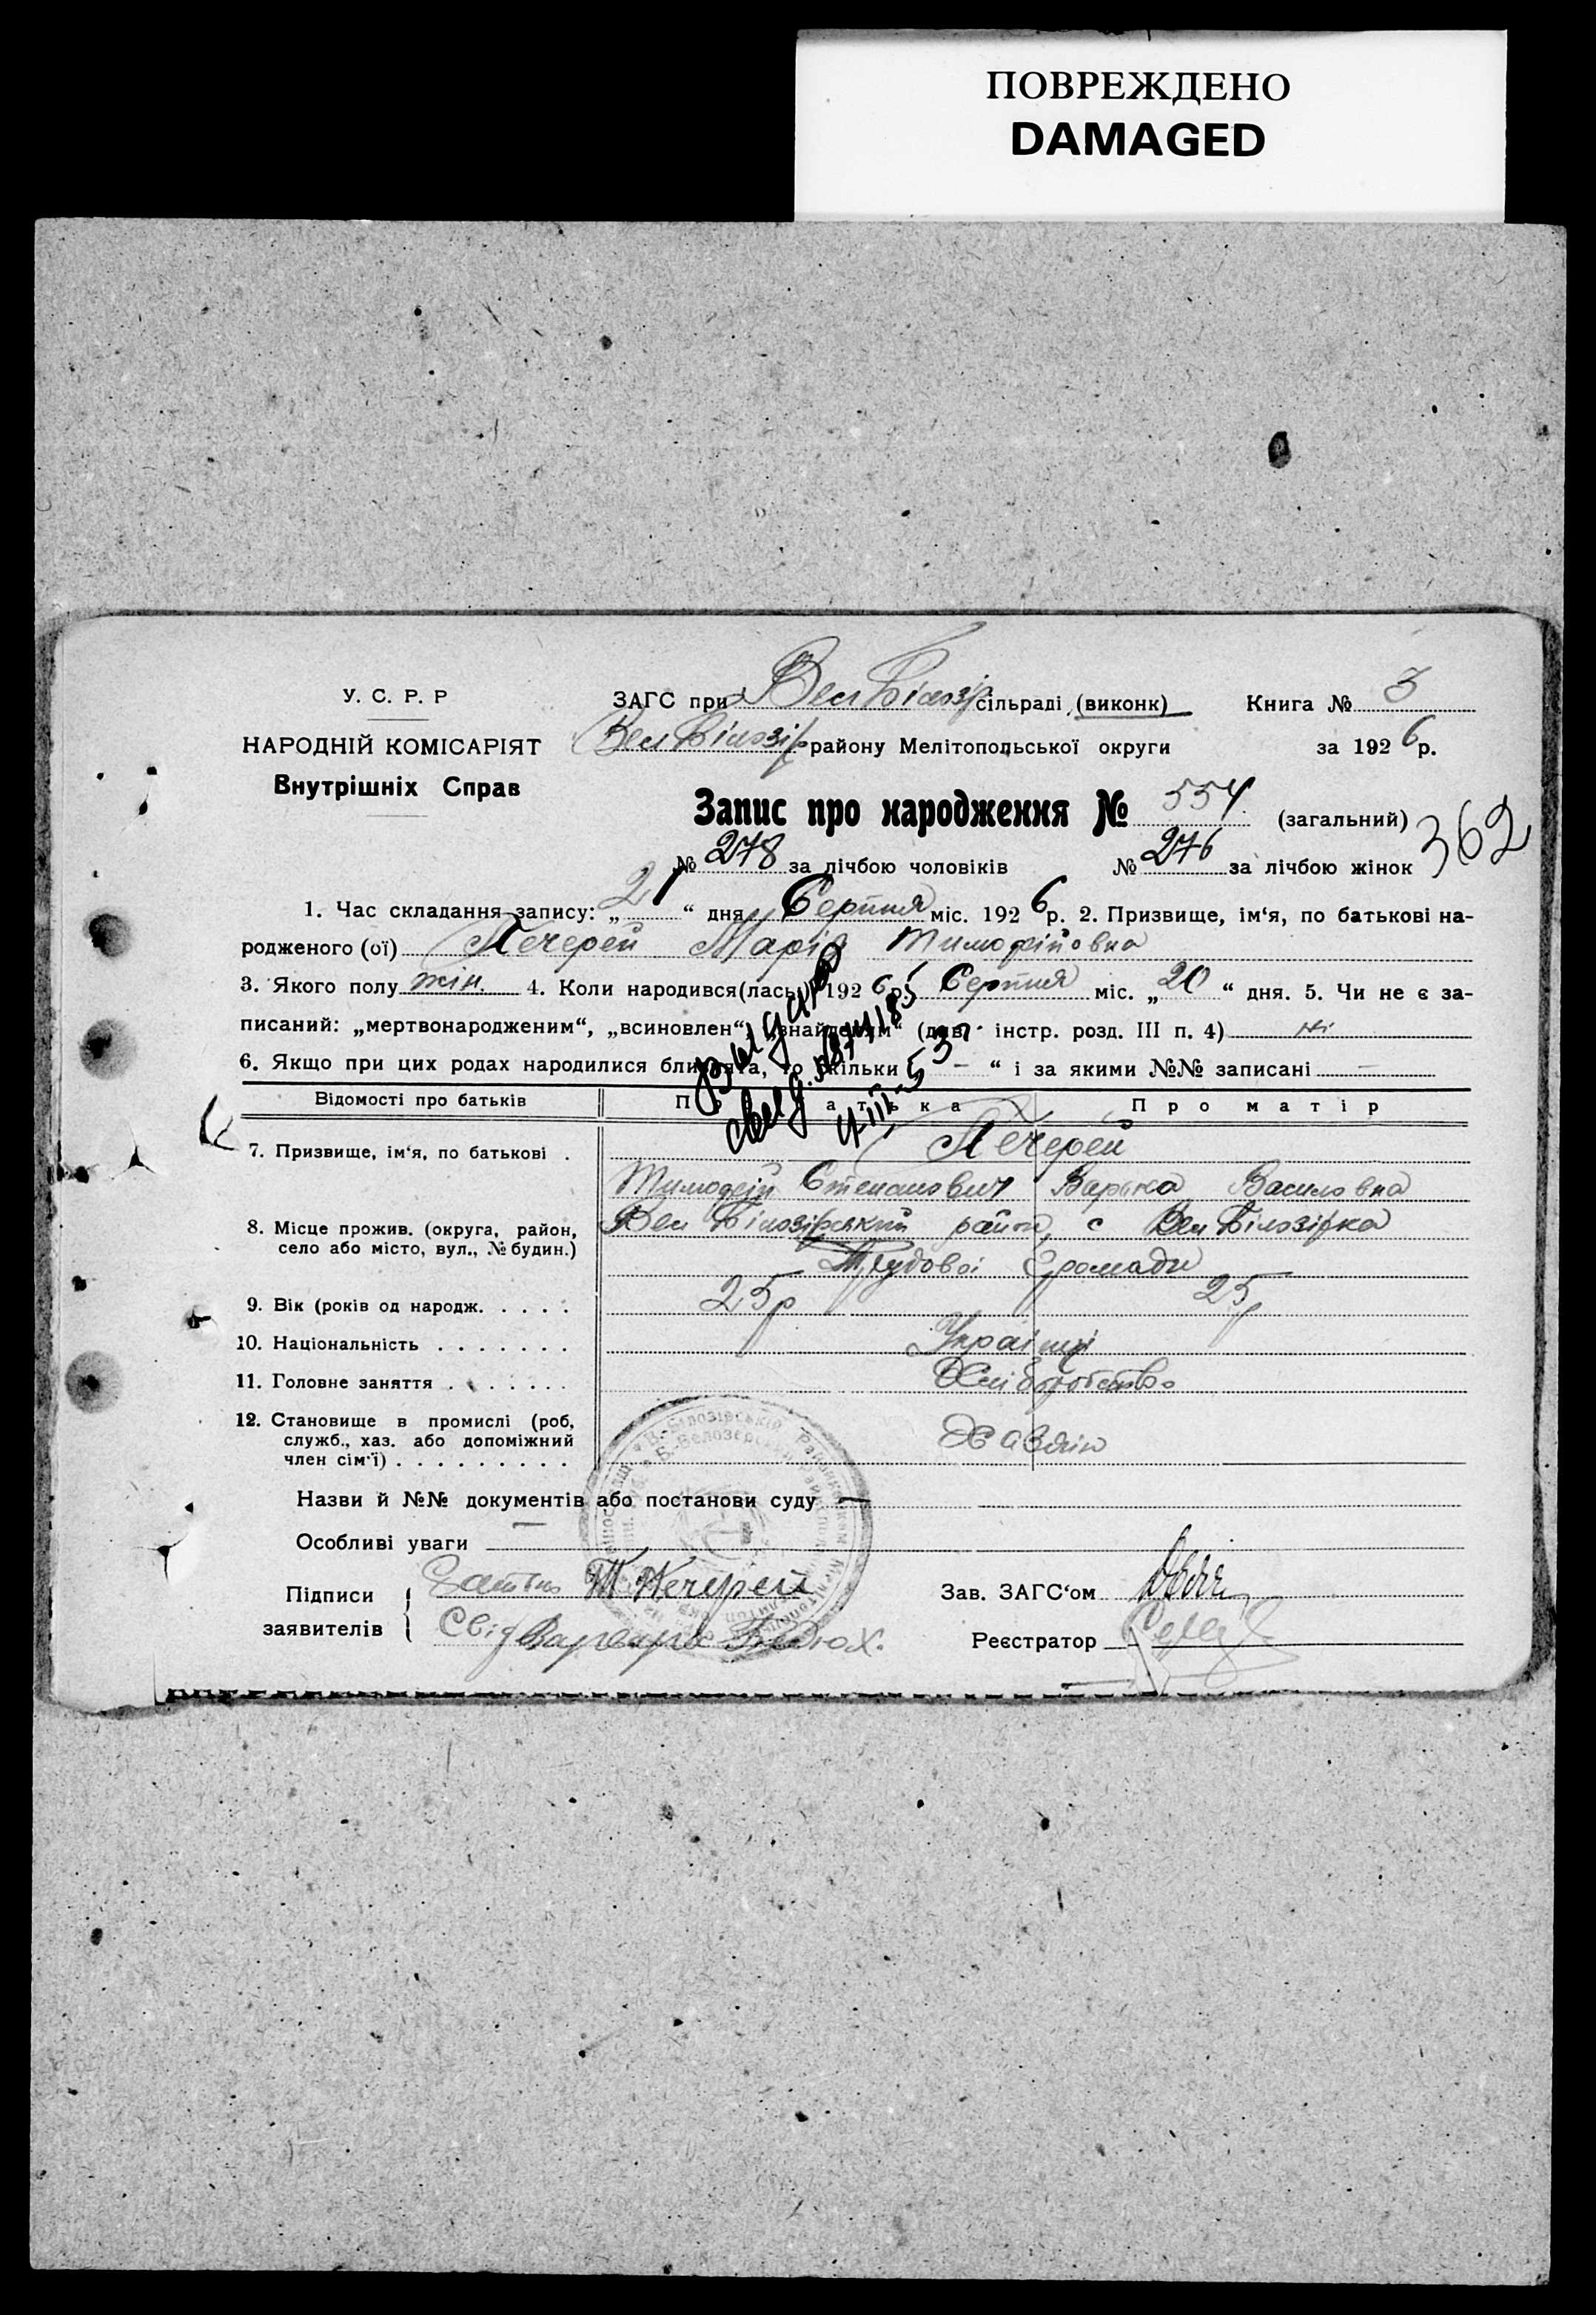 ПОВРЕЖДЕНО
DAMAGED
У. С. Р. Р
НАРОДНІЙ КОМІСАРІЯТ
Внутрішніх Справ
ЗАГС при Вел Білозір сільраді (виконк)
Вел Білозір району Мелітопольської округи
Книга № 3
за 1926 р.
Запис про народження № 554 (загальний)
362
№ 278 за лічбою чоловіків № 276 за лічбою жінок
1. Час складання запису: „21“ дня Серпня міс. 1926 р. 2. Призвище, ім‘я, по батькові на-
родженого (ої) Печерей Марія Тимофіїовна
3. Якого полу жін. 4. Коли народився(лась) 1926 р. Серпня міс. „20“ дня. 5. Чи не є за-
писаний: „мертвонародженим“, „всиновлен“, „знайденим“ (див. інстр. розд. III п. 4) ні
6. Якщо при цих родах народилися близнята, то скільки „ — “ і за якими №№ записані —
Выдано
свид.
Відомості про батьків Про батька Про матір
7. Призвище, ім‘я, по батькові . Печерей
Тимофей Степанович Варька Василовна
8. Місце прожив. (округа, район, село або місто, вул., № будин.) Вел Білозірський район, с Вел Білозірка
Трудової Громади
9. Вік (років од народж. . . . . 25 р 25 р
10. Національність . . . . . . . Українці
11. Головне заняття . . . . . . . Хліборобство
12. Становище в промислі (роб,
служб., хаз. або допоміжний
член сім‘ї) . . . . . . . . . Хазяїн
Назви й №№ документів або постанови суду —
Особливі уваги —
Підписи заявителів
Батько Т Печерей
Свід Варвара
Зав. ЗАГС‘ом
Реєстратор